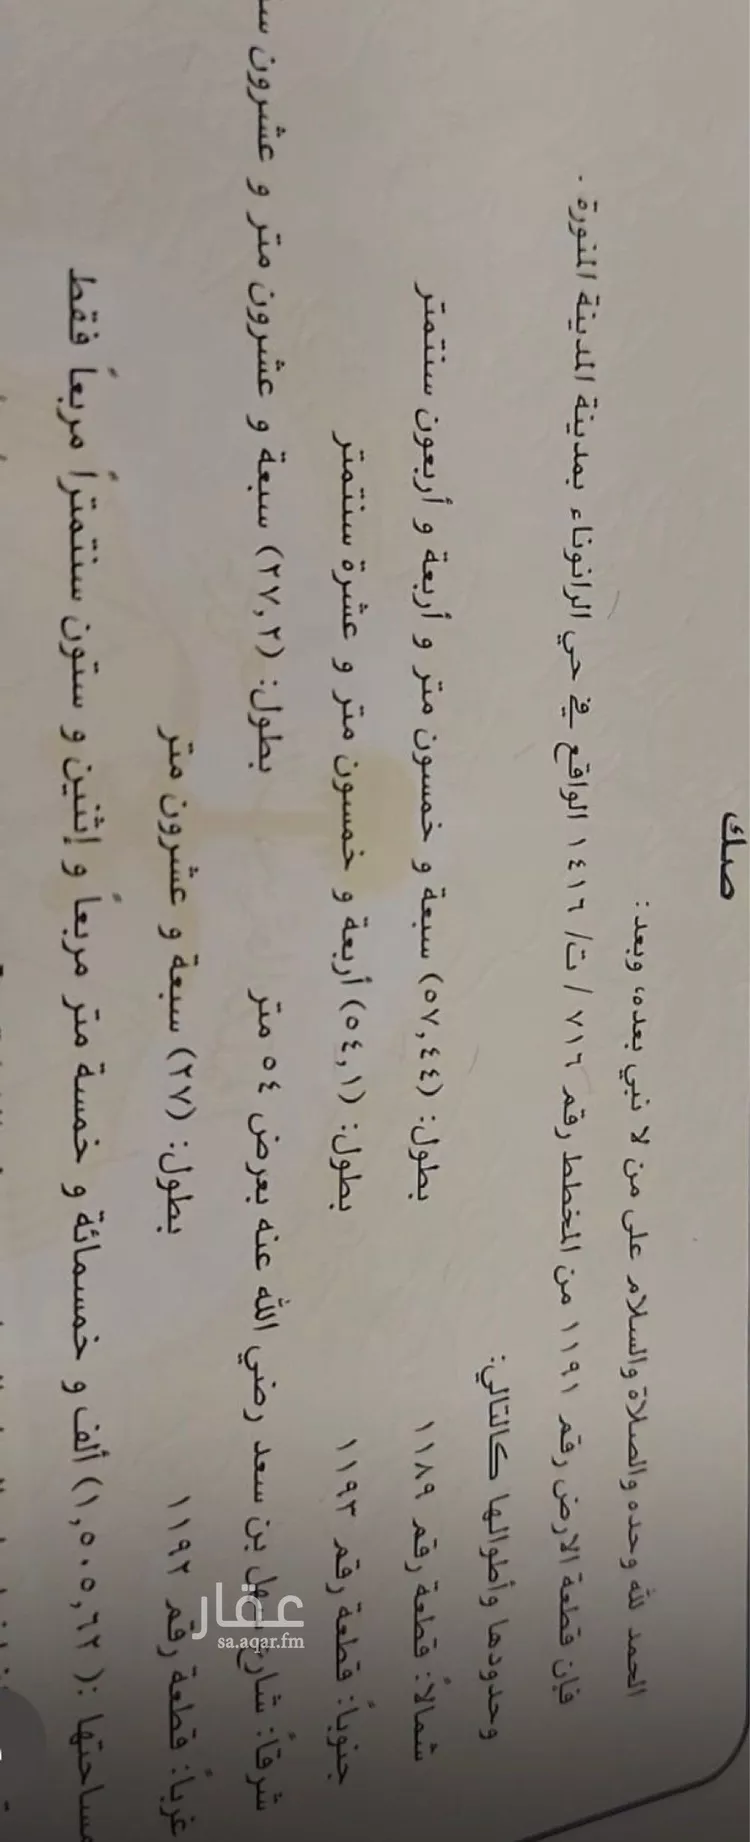 صك
الحمد لله وحده والصلاة والسلام على من لا نبي بعده، وبعد:
فإن قطعة الارض رقم ١١٩١ من المخطط رقم ٧١٦ / ت/ ١٤١٦ الواقع في حي الرانوناء بمدينة المدينة المنورة .
وحدودها وأطوالها كالتالي:
شمالاً: قطعة رقم ١١٨٩ بطول: (٥٧,٤٤) سبعة و خمسون متر و أربعة و أربعون سنتمتر
جنوباً: قطعة رقم ١١٩٣ بطول: (٥٤,١) أربعة و خمسون متر و عشرة سنتمتر
شرقاً: شارع سهل بن سعد رضي الله عنه بعرض ٥٤ متر بطول: (٢٧,٢) سبعة و عشرون متر و عشرون
غرباً: قطعة رقم ١١٩٢ بطول: (٢٧) سبعة و عشرون متر
مساحتها :(١,٥٠٥,٦٢) ألف و خمسمائة و خمسة متر مربعاً و إثنين و ستون سنتمتراً مربعاً فقط
عقار
sa.aqar.fm